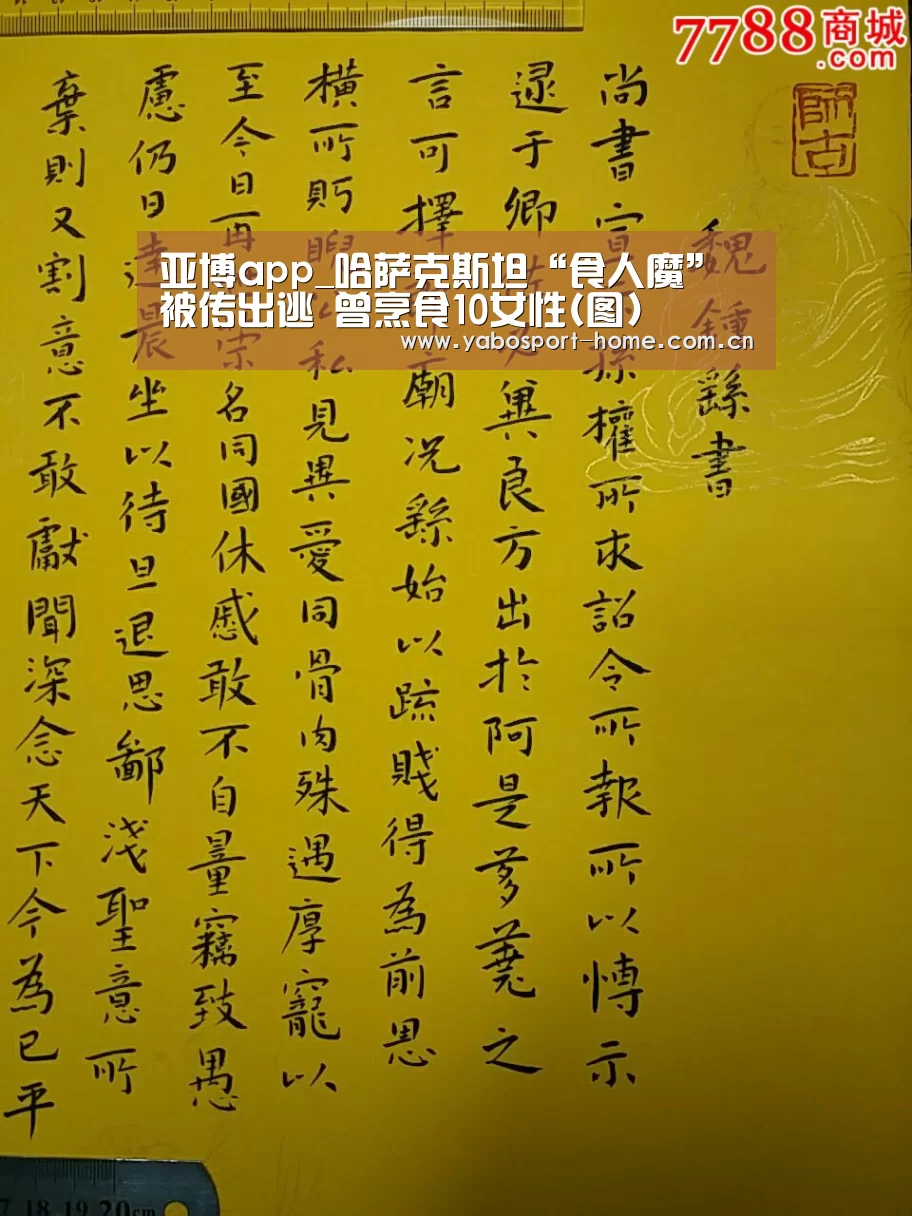 7788商城
.com
師古
魏鍾繇書
尚書宣孫權所求詔令所報所以博示
逮于卿必冀良方出於阿是芻蕘之
言可擇廟況繇始以疏賤得為前恩
橫所眄睨私見異愛同骨肉殊遇厚寵以
至今日再榮名同國休慼敢不自量竊致愚
慮仍日達晨坐以待旦退思鄙淺聖意所
棄則又割意不敢獻聞深念天下今為已平
亚博app_哈萨克斯坦“食人魔”
被传出逃 曾烹食10女性(图)
www.yabosport-home.com.cn
17 18 19 20cm